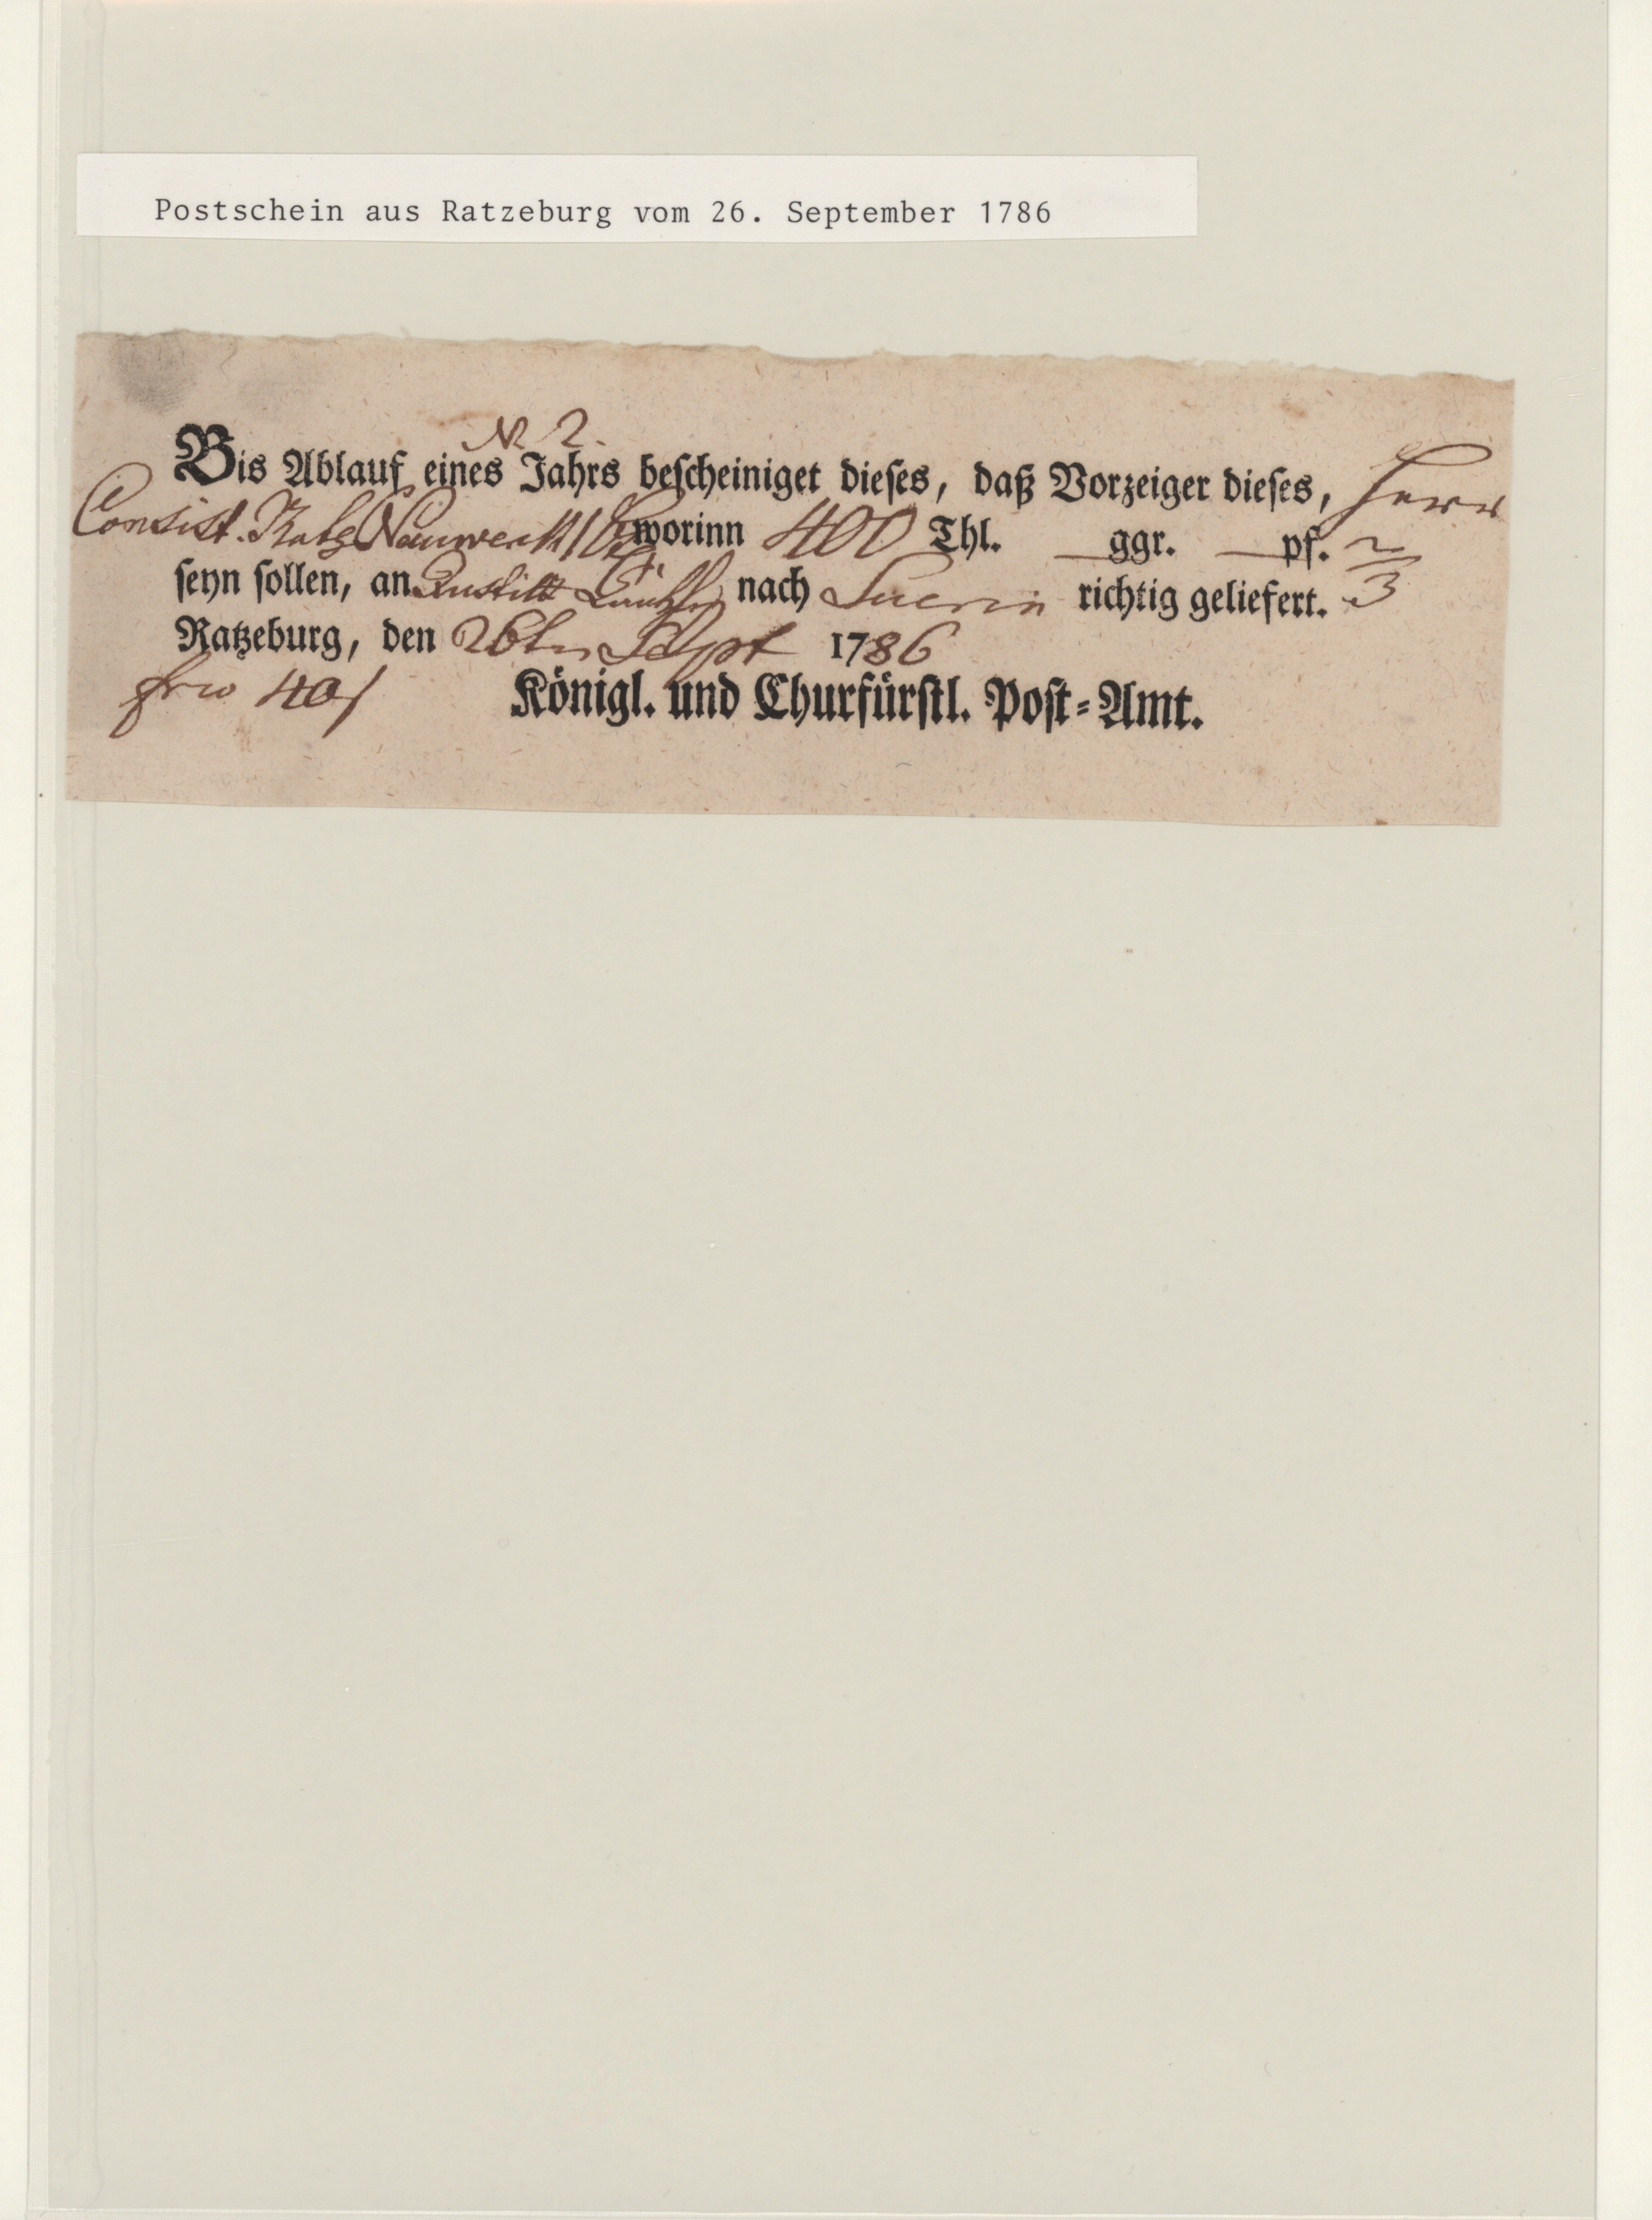 Postschein aus Ratzeburg vom 26. September 1786
N. 2.
Bis Ablauf eines Jahrs bescheiniget dieses, daß Vorzeiger dieses, Herr
Consist. Rath Nauwerck 1 worinn 400 Thl. — ggr. — pf. 2/3
seyn sollen, an nach Suerin richtig geliefert.
Ratzeburg, den 26ten Sept 1786
frco 40
Königl. und Churfürstl. Post-Amt.